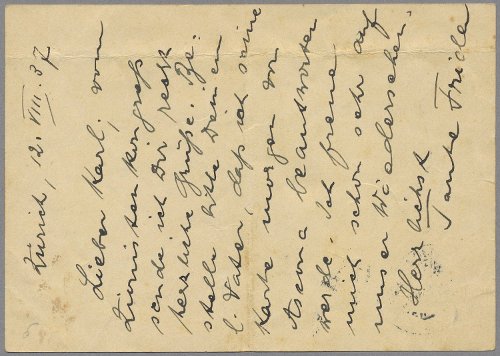 Zürich, 12. VIII. 37
Lieber Karl, vom
Zionistenkongreß
sende ich Dir recht
herzliche Grüße. Be-
stelle bitte Deinem
l. Vater, daß ich seine
Karte morgen von
Ascona beantworten
werde. Ich freue
mich schon sehr auf
unser Wiedersehen.
Herzlichst
Tante Frieda